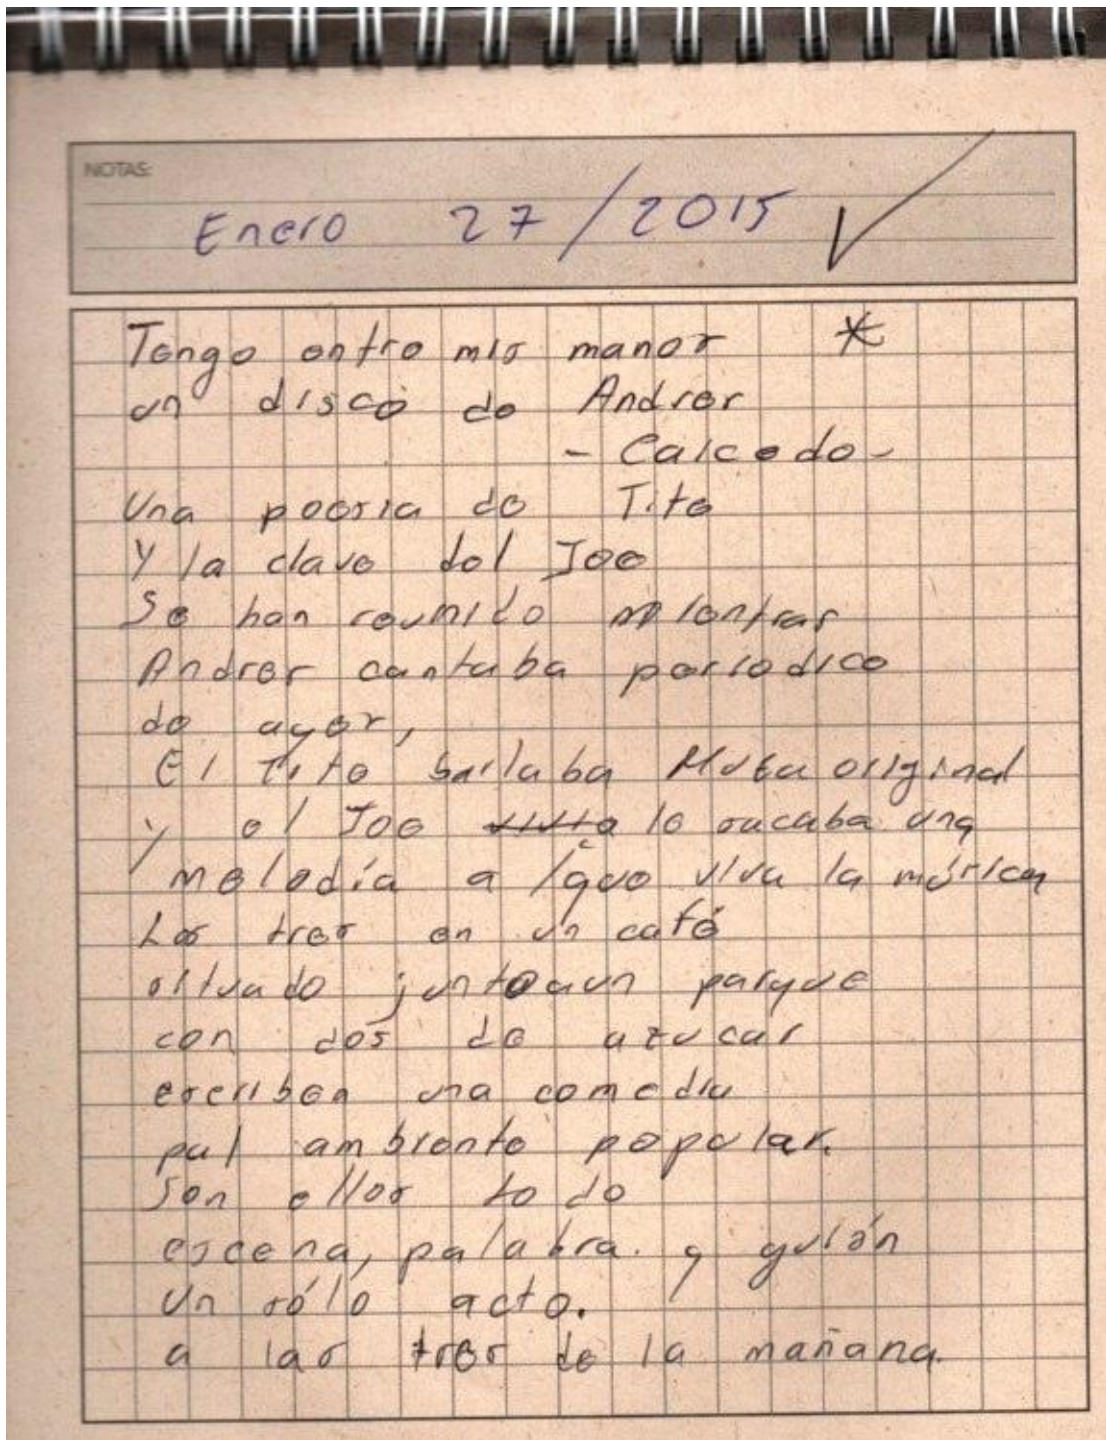 NOTAS:
Enero 27/2015 ✓
Tengo entre mis manos *
un disco de Andres
- Caicedo -
Una poesia de Tito
Y la clave del Joe
Se han reunido mientras
Andres cantaba periodico
de ayer,
El Tito bailaba original
y el Joe le sacaba una
melodía a ¡que viva la música
Los tres en un café
situado junto a un parque
con dos de azucar
escriben una comedia
pal ambiente popular.
Son ellos todo
escena, palabra. y guión
Un sólo acto.
a las tres de la mañana.